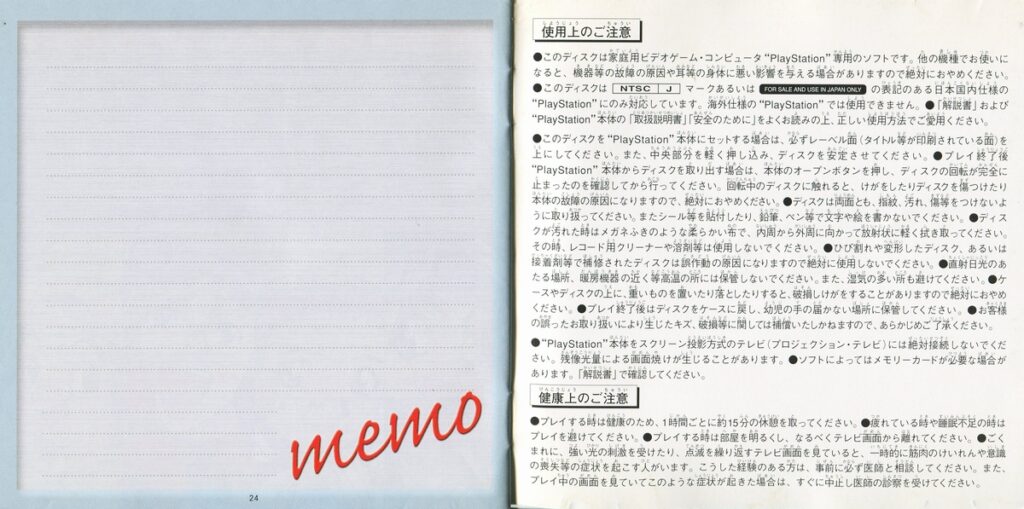 memo
24
使用上のご注意
●このディスクは家庭用ビデオゲーム・コンピュータ“PlayStation”専用のソフトです。他の機種でお使いに
なると、機器等の故障の原因や耳等の身体に悪い影響を与える場合がありますので絶対におやめください。
●このディスクは NTSC J マークあるいは FOR SALE AND USE IN JAPAN ONLY の表記のある日本国内仕様の
“PlayStation”にのみ対応しています。海外仕様の“PlayStation”では使用できません。●「解説書」および
“PlayStation”本体の「取扱説明書」「安全のために」をよくお読みの上、正しい使用方法でご愛用ください。
●このディスクを“PlayStation”本体にセットする場合は、必ずレーベル面(タイトル等が印刷されている面)を
上にしてください。また、中央部分を軽く押し込み、ディスクを安定させてください。●プレイ終了後
“PlayStation”本体からディスクを取り出す場合は、本体のオープンボタンを押し、ディスクの回転が完全に
止まったのを確認してから行ってください。回転中のディスクに触れると、けがをしたりディスクを傷つけたり
本体の故障の原因になりますので、絶対におやめください。●ディスクは両面とも、指紋、汚れ、傷等をつけないよ
うに取り扱ってください。またシール等を貼付したり、鉛筆、ペン等で文字や絵を書かないでください。●ディス
クが汚れた時はメガネふきのような柔らかい布で、内周から外周に向かって放射状に軽く拭き取ってください。
その時、レコード用クリーナーや溶剤等は使用しないでください。●ひび割れや変形したディスク、あるいは
接着剤等で補修されたディスクは誤作動の原因になりますので絶対に使用しないでください。●直射日光のあ
たる場所、暖房機器の近く等高温の所には保管しないでください。また、湿気の多い所も避けてください。●ケ
ースやディスクの上に、重いものを置いたり落としたりすると、破損しけがをすることがありますので絶対におやめ
ください。●プレイ終了後はディスクをケースに戻し、幼児の手の届かない場所に保管してください。●お客様
の誤ったお取り扱いにより生じたキズ、破損等に関しては補償いたしかねますので、あらかじめご了承ください。
●“PlayStation”本体をスクリーン投影方式のテレビ(プロジェクション・テレビ)には絶対接続しないでくだ
さい。残像光量による画面焼けが生じることがあります。●ソフトによってはメモリーカードが必要な場合が
あります。「解説書」で確認してください。
健康上のご注意
●プレイする時は健康のため、1時間ごとに約15分の休憩を取ってください。●疲れている時や睡眠不足の時は
プレイを避けてください。●プレイする時は部屋を明るくし、なるべくテレビ画面から離れてください。●ごく
まれに、強い光の刺激を受けたり、点滅を繰り返すテレビ画面を見ていると、一時的に筋肉のけいれんや意識
の喪失等の症状を起こす人がいます。こうした経験のある方は、事前に必ず医師と相談してください。また、
プレイ中の画面を見ていてこのような症状が起きた場合は、すぐに中止し医師の診察を受けてください。